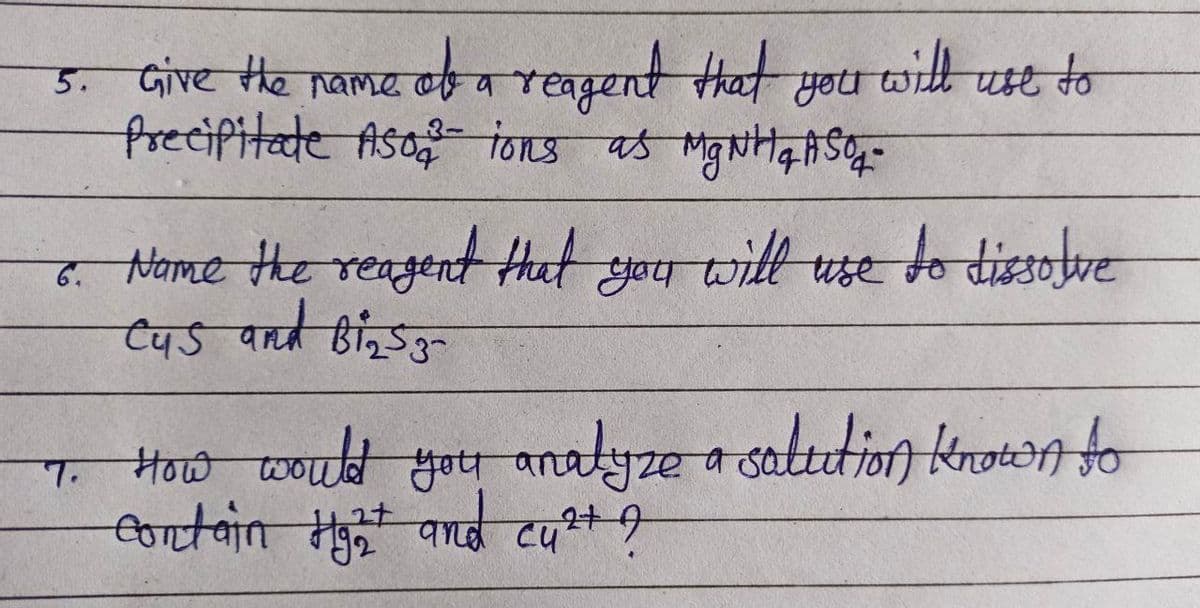 5. Give the name of a reagent that you will use to
Precipitate ASO₄³⁻ ions as MgNH₄ASO₄-
6. Name the reagent that you will use to dissolve
CuS and Bi₂S₃-
7. How would you analyze a solution known to
contain Hg₂²⁺ and cu²⁺ ?